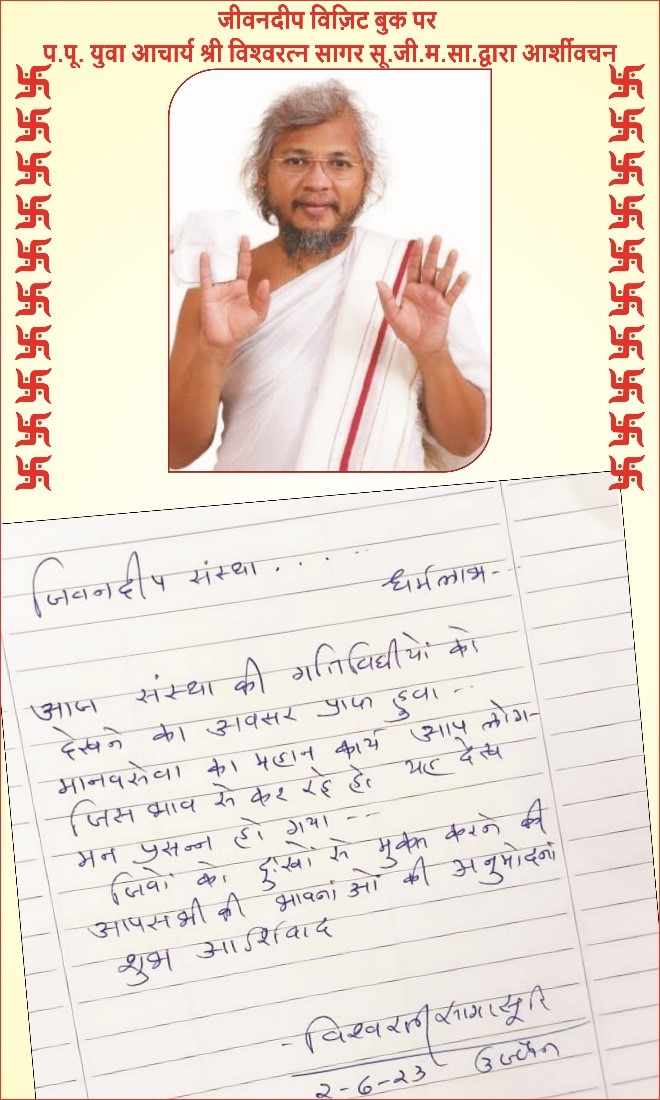 जीवनदीप विज़िट बुक पर
प.पू. युवा आचार्य श्री विश्वरत्न सागर सू.जी.म.सा.द्वारा आर्शीवचन
जिवनदीप संस्था . . . . .
धर्मलाभ - -
आज संस्था की गतिविधीयों को
देखने का अवसर प्राप्त हुवा - -
मानवसेवा का महान कार्य आप लोग-
जिस भाव से कर रहे हो यह देख
मन प्रसन्न हो गया - -
जिवों को दुःखों से मुक्त करने की
आपसभी की भावनाओं की अनुमोदना
शुभ आर्शिवाद
- विश्वरत्नसागरसूरि
२-6-२3 उज्जैन